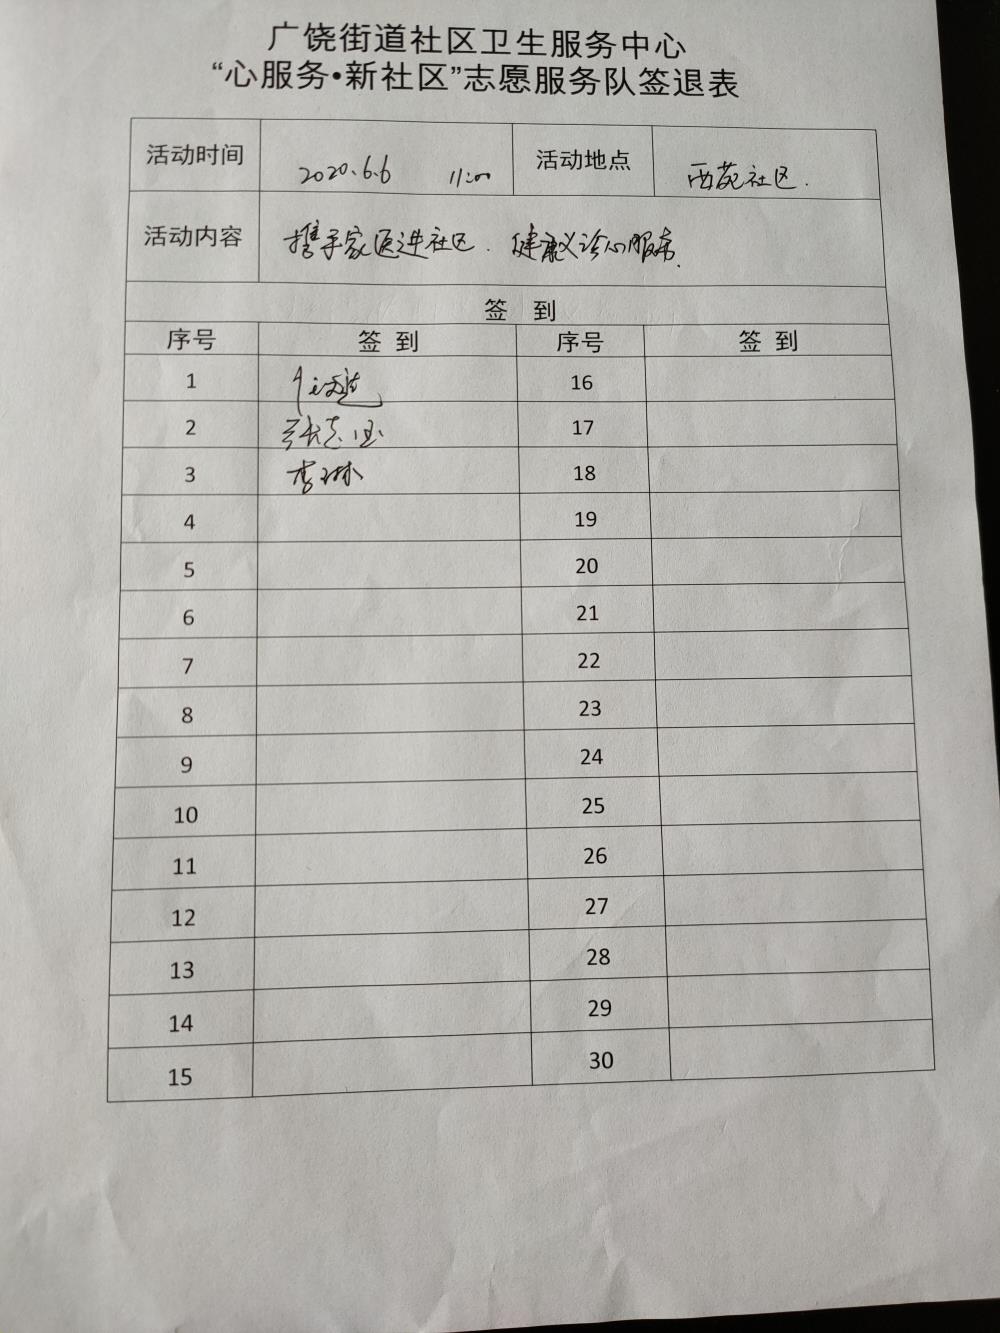 广饶街道社区卫生服务中心
“心服务•新社区”志愿服务队签退表
活动时间 2020.6.6 11:00 活动地点 西苑社区.
活动内容 携手家医进社区. 健康义诊心服务.
签 到
序号 签 到 序号 签 到
1 16
2 张志国 17
3 李琳 18
4 19
5 20
6 21
7 22
8 23
9 24
10 25
11 26
12 27
13 28
14 29
15 30